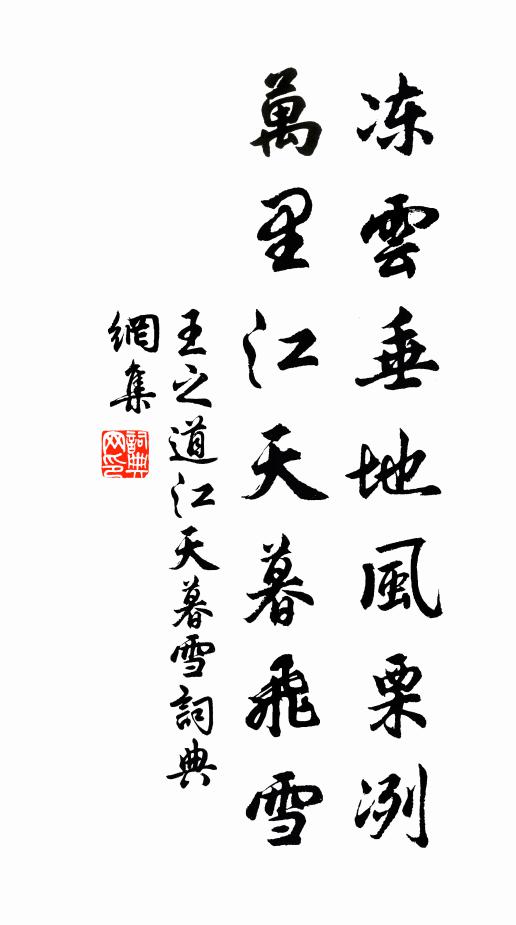 冻雲垂地風栗冽
萬里江天暮飛雪
王之道江天暮雪詞典
網集
詞典網印